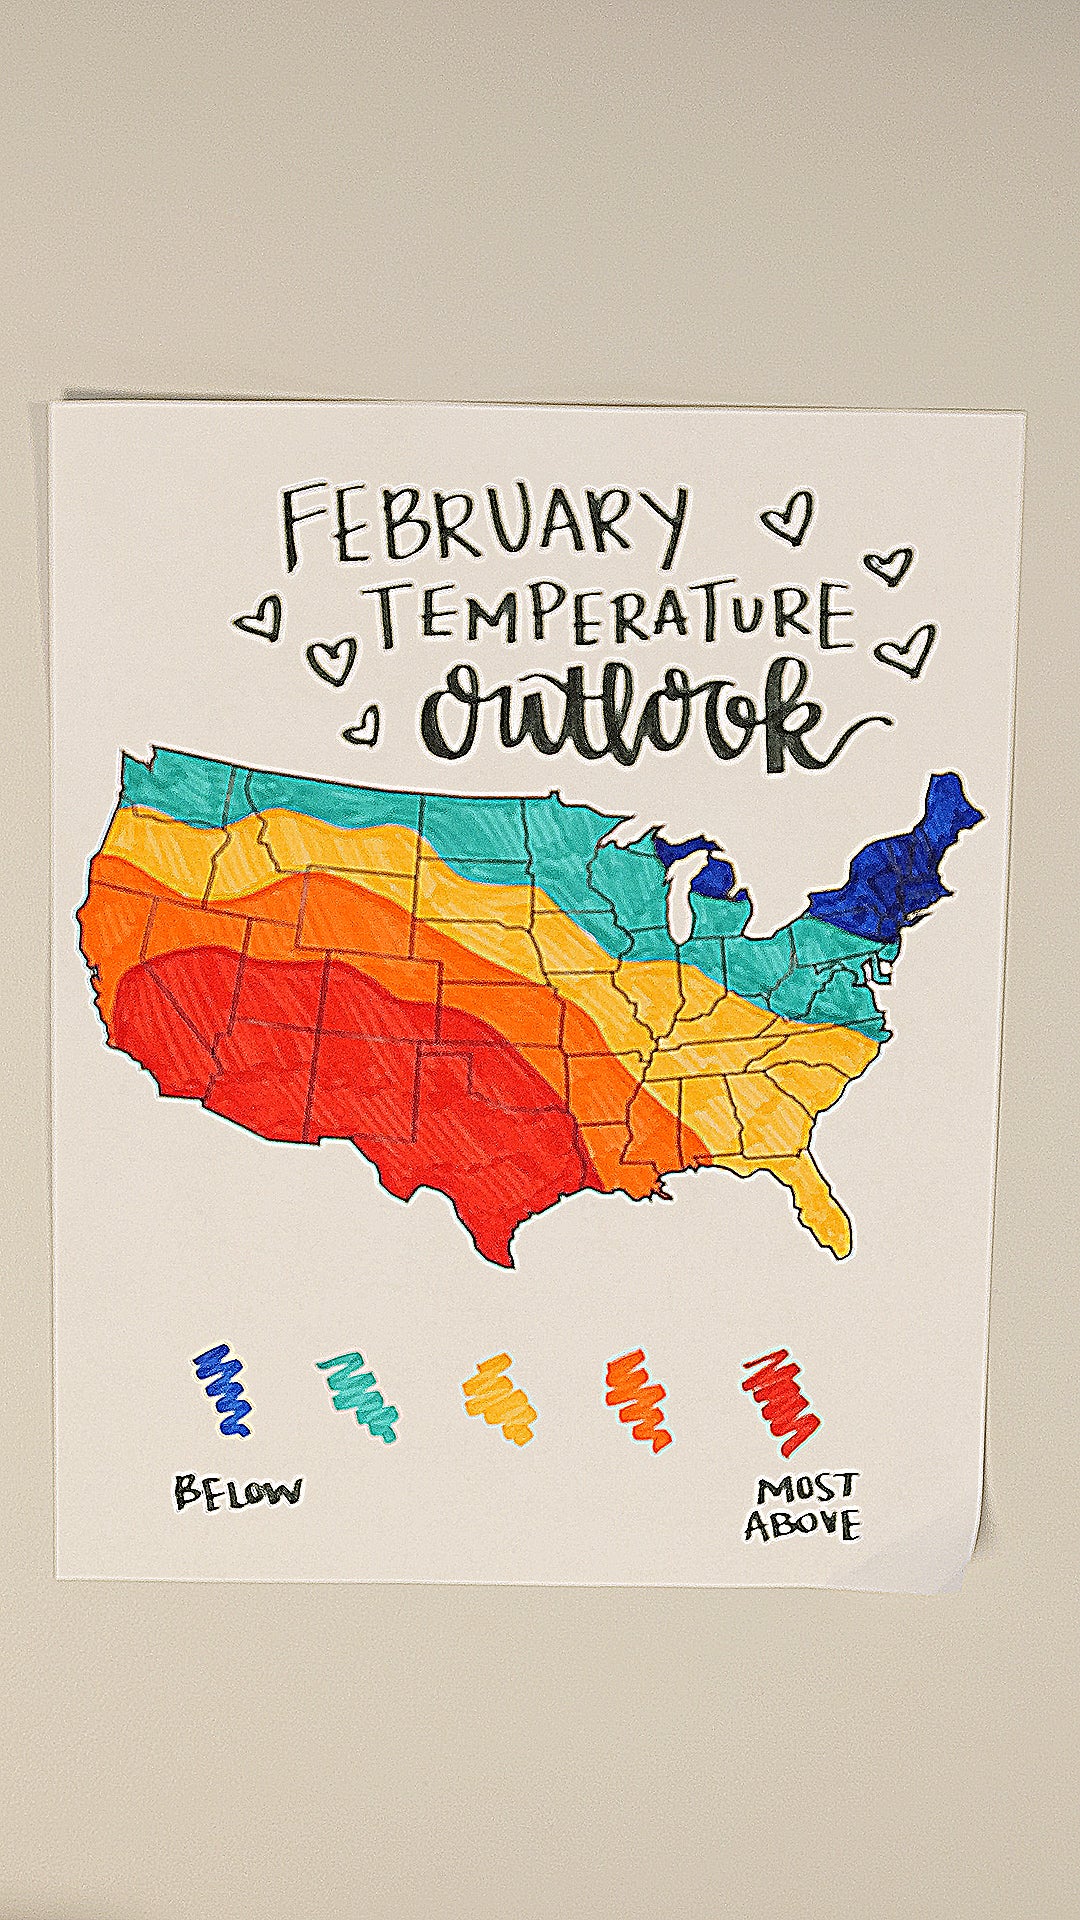 FEBRUARY
TEMPERATURE
outlook
BELOW
MOST
ABOVE